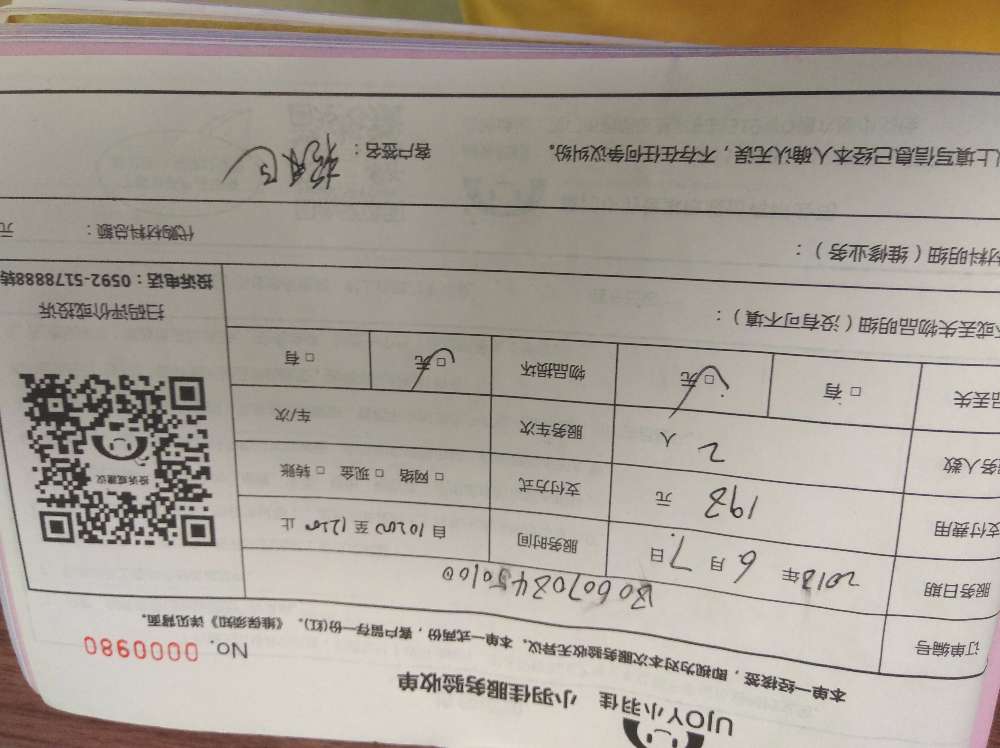 UJOY小羽佳 小羽佳服务验收单
No. 0000980
本单一经核签，即视为对本次服务验收无异议。本单一式两份，客户留存一份(红)。《维保须知》详见背面。
订单编号
服务日期 2018年 6月 7日 服务时间 自 10200 至 1200 止
支付费用 元 支付方式 □ 网络 □ 现金 □ 转账
务人数 2 人 服务车次 车/次
品丢失 □ 有 □ 无 物品损坏 □ 无 □ 有
投诉或建议
扫码评价或投诉
投诉电话：0592-5178888转
或丢失物品明细（没有可不填）：
材料明细（维修业务）： 代购材料总额： 元
上填写信息已经本人确认无误，不存在任何争议纠纷。 客户签名：